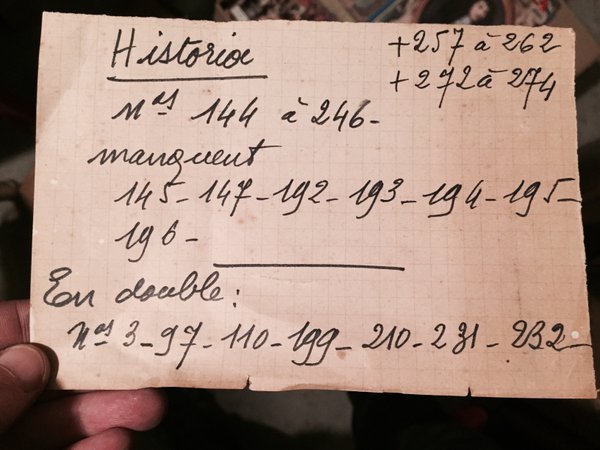 Historia
+ 257 à 262
+ 272 à 274
Nos 144 à 246-
manquent
145- 147- 192- 193- 194- 195-
196-
En double:
Nos 3- 97- 110- 199- 210- 231- 232-